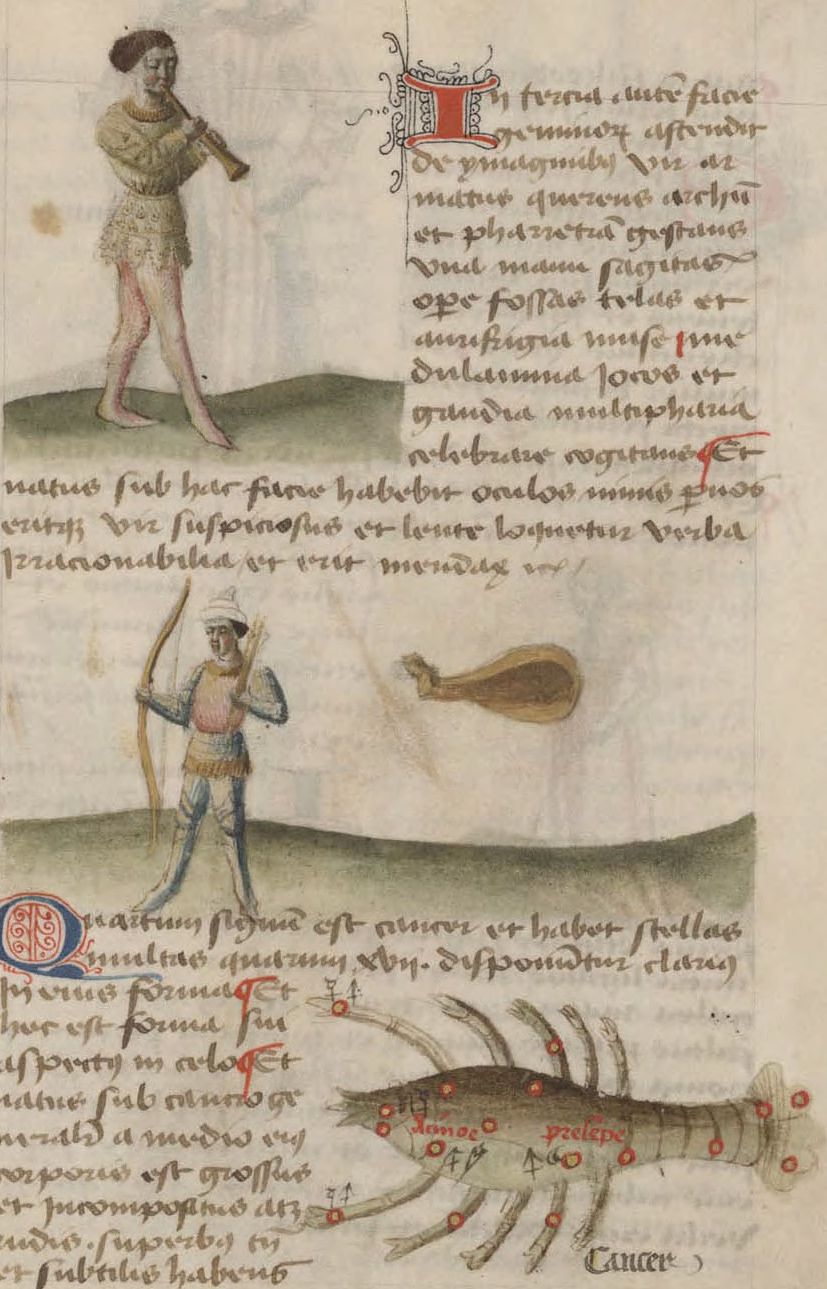 In tercia autē facie
geminoꝝ ascendit
de ymaginibꝰ vir ar
matus querens archū
et pharretrā gestans
vna manu sagitas
ope fossas telas et
aurifrigia muse ime
dulamina Jocos et
gaudia multipharia
celebrare cogitans Et
natus sub hac facie habebit oculos nimis ꝑuos
eritqꝫ vir suspiciosus et lente loquetur verba
Irracionabilia et erit mendax
Quartum signū est cancer et habet stellas
multas quarum xvii. disponūtur clariꝰ
In eius forma Et
hec est forma sui
aspectꝰ in celo Et
natus sub cancro ge
neralr̄ a medio eiꝰ
corporis est grossus
et Incompositus atqꝫ
rudis . superbꝰ tn̄
et subtilis habens
presepe
Cancer